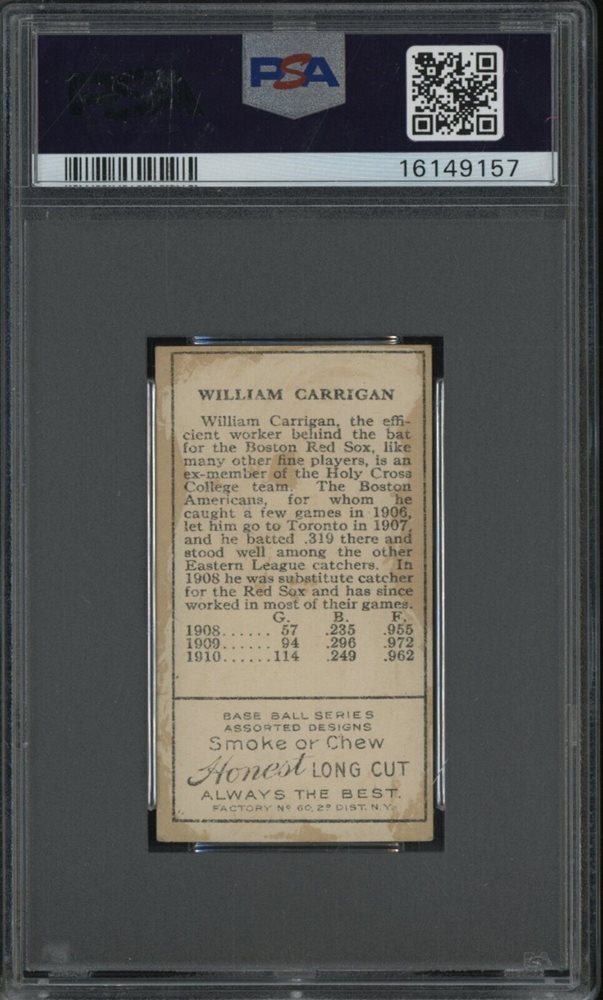 PSA
16149157
WILLIAM CARRIGAN
William Carrigan, the effi-
cient worker behind the bat
for the Boston Red Sox, like
many other fine players, is an
ex-member of the Holy Cross
College team. The Boston
Americans, for whom he
caught a few games in 1906,
let him go to Toronto in 1907,
and he batted .319 there and
stood well among the other
Eastern League catchers. In
1908 he was substitute catcher
for the Red Sox and has since
worked in most of their games.
G. B. F.
1908...... 57 .235 .955
1909...... 94 .296 .972
1910......114 .249 .962
BASE BALL SERIES
ASSORTED DESIGNS
Smoke or Chew
Honest LONG CUT
ALWAYS THE BEST.
FACTORY No 60, 2D DIST. N.Y.